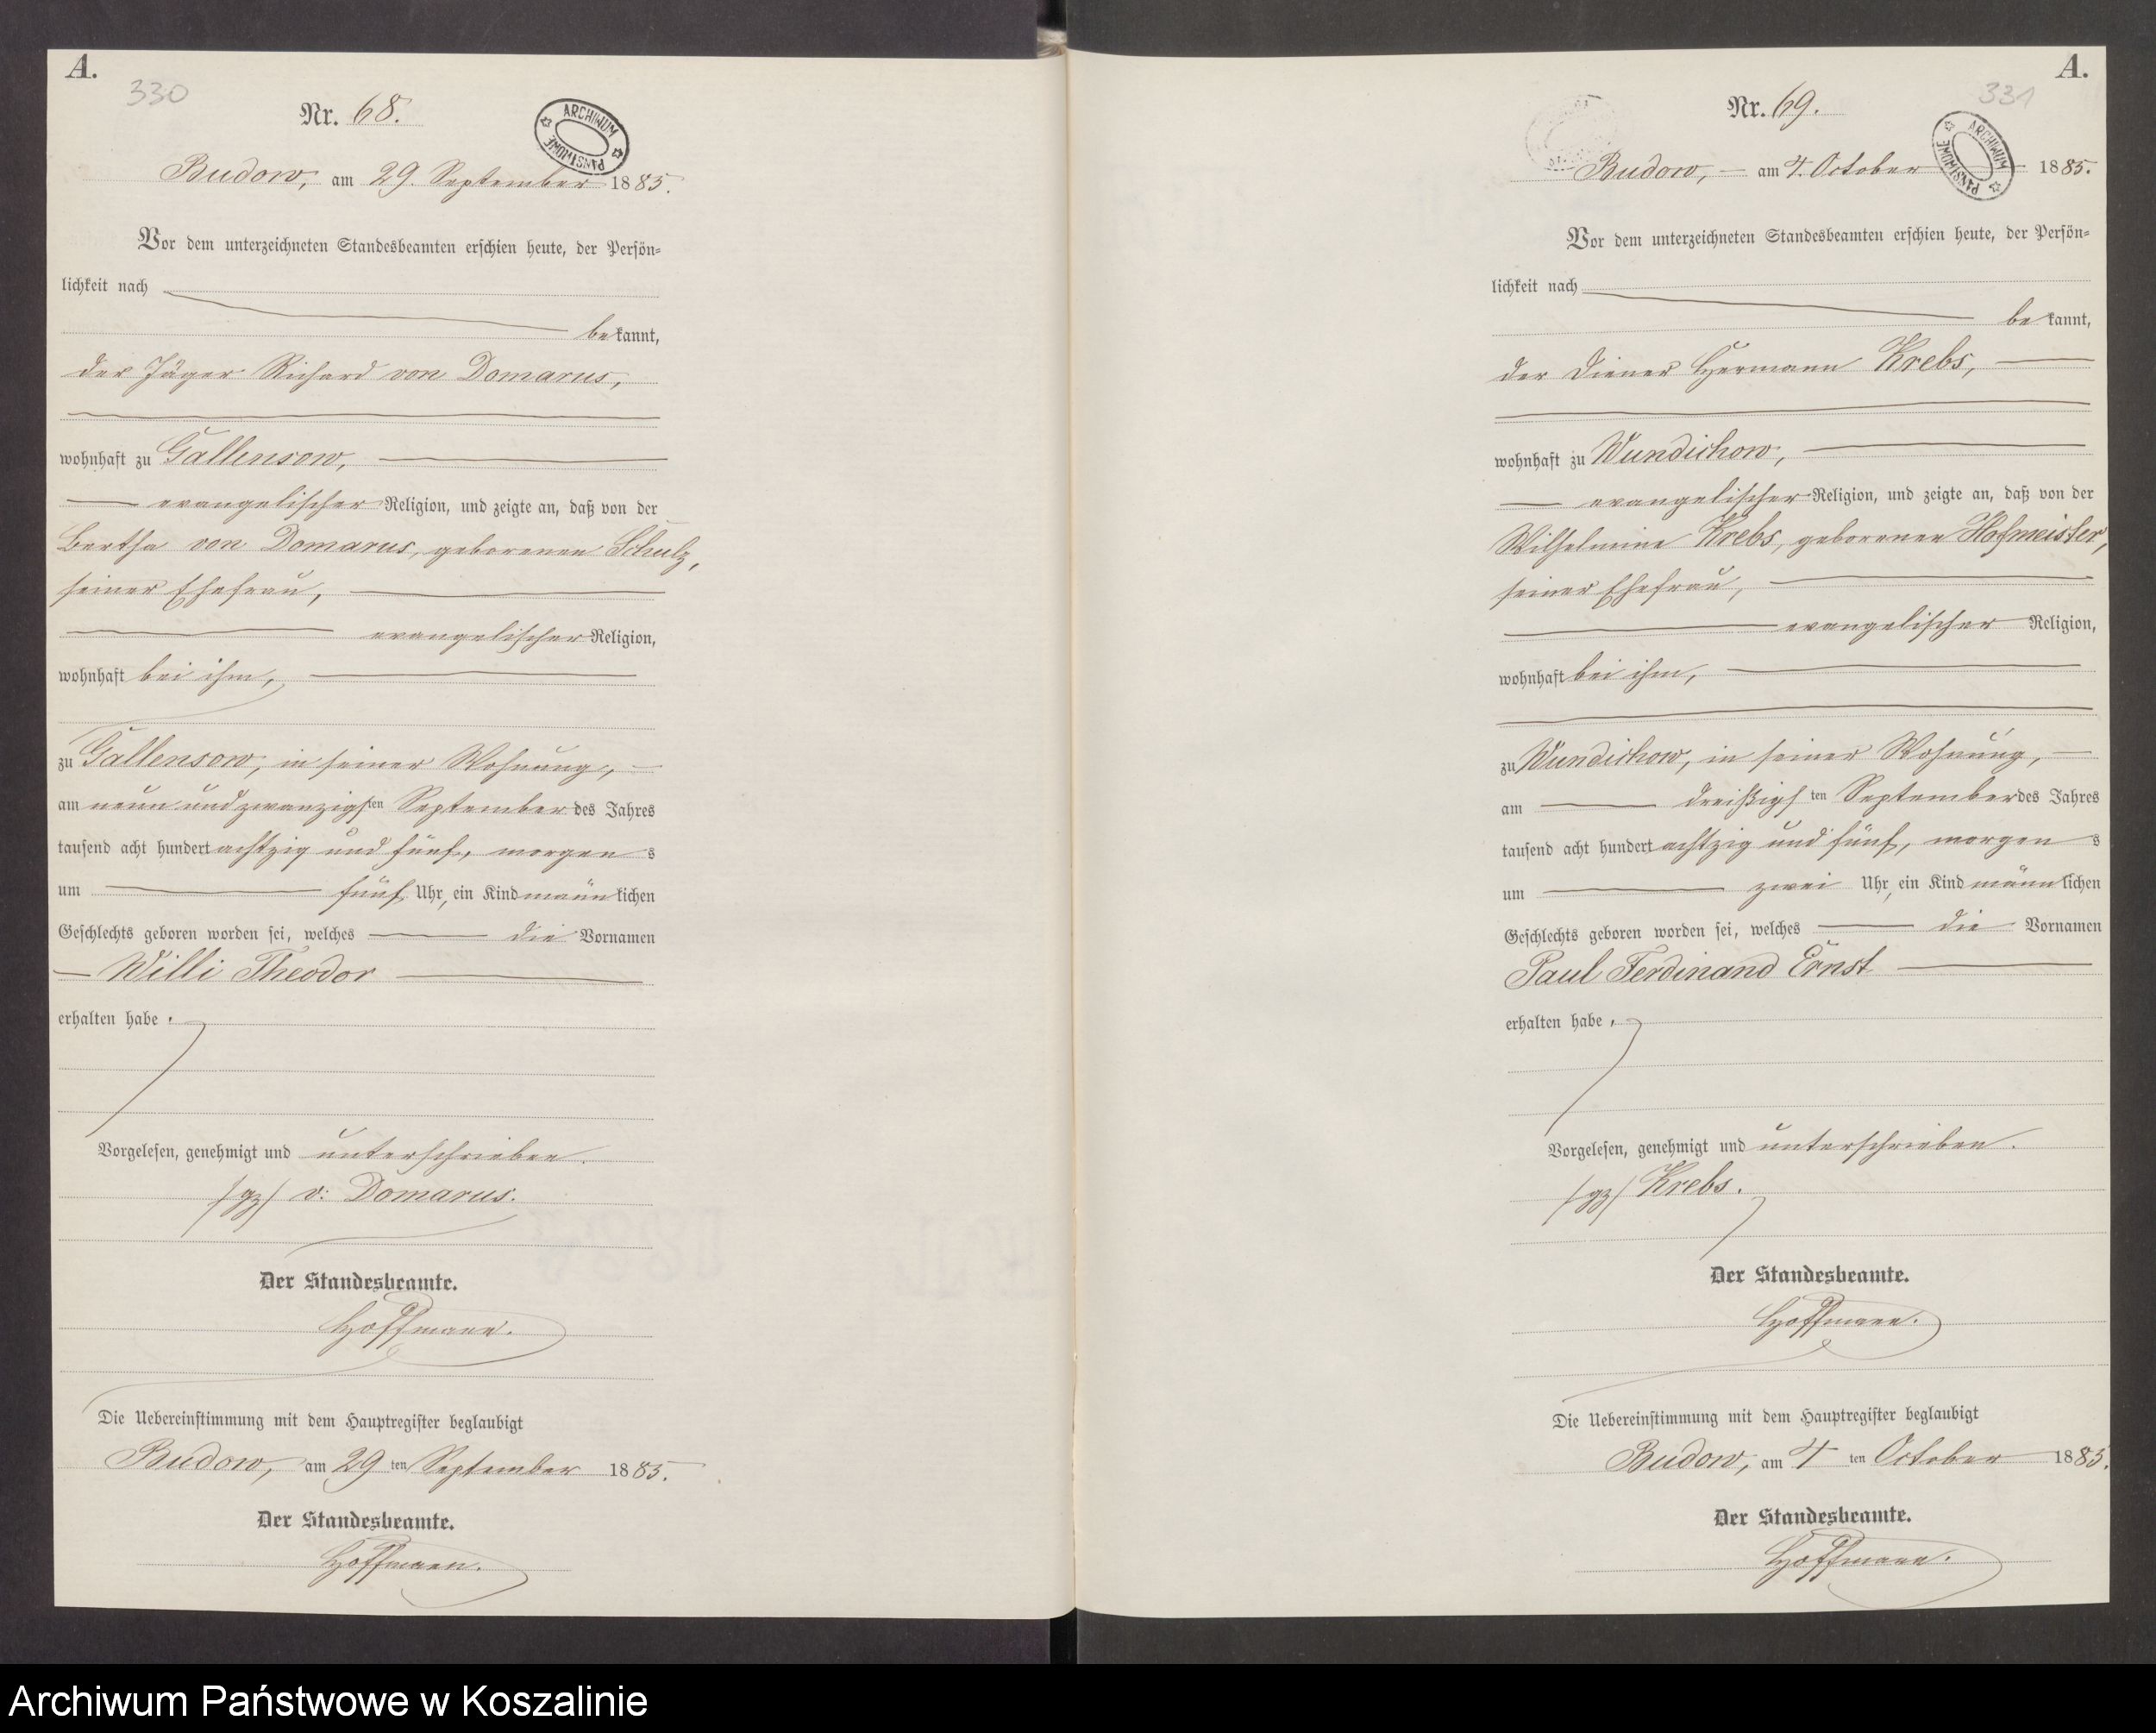 A.
330
Nr. 68.
ARCHIWUM PAŃSTWOWE
Budow, am 29. September 1885.
Vor dem unterzeichneten Standesbeamten erschien heute, der Persön=
lichkeit nach
bekannt,
der Jäger Richard von Domarus,
wohnhaft zu Gallensow,
evangelischer Religion, und zeigte an, daß von der
Bertha von Domarus, geborenen Schulz,
seiner Ehefrau,
evangelischer Religion,
wohnhaft bei ihm,
zu Gallensow, in seiner Wohnung,
am neun und zwanzigsten September des Jahres
tausend acht hundert achtzig und fünf, morgens
um fünf Uhr, ein Kind männlichen
Geschlechts geboren worden sei, welches die Vornamen
Willi Theodor
erhalten habe.
Vorgelesen, genehmigt und unterschrieben.
/gz/ v: Domarus.
Der Standesbeamte.
Hoffmann.
Die Uebereinstimmung mit dem Hauptregister beglaubigt
Budow, am 29ten September 1885.
Der Standesbeamte.
Hoffmann.
A.
331
Nr. 69.
ARCHIWUM PAŃSTWOWE
Budow, am 4. October 1885.
Vor dem unterzeichneten Standesbeamten erschien heute, der Persön=
lichkeit nach
bekannt,
der Diener Hermann Krebs,
wohnhaft zu Wundichow,
evangelischer Religion, und zeigte an, daß von der
Wilhelmine Krebs, geborenen Hofmeister,
seiner Ehefrau,
evangelischer Religion,
wohnhaft bei ihm,
zu Wundichow, in seiner Wohnung,
am dreißigsten September des Jahres
tausend acht hundert achtzig und fünf, morgens
um zwei Uhr, ein Kind männlichen
Geschlechts geboren worden sei, welches die Vornamen
Paul Ferdinand Ernst
erhalten habe.
Vorgelesen, genehmigt und unterschrieben.
/gz/ Krebs.
Der Standesbeamte.
Hoffmann.
Die Uebereinstimmung mit dem Hauptregister beglaubigt
Budow, am 4ten October 1885.
Der Standesbeamte.
Hoffmann.
Archiwum Państwowe w Koszalinie